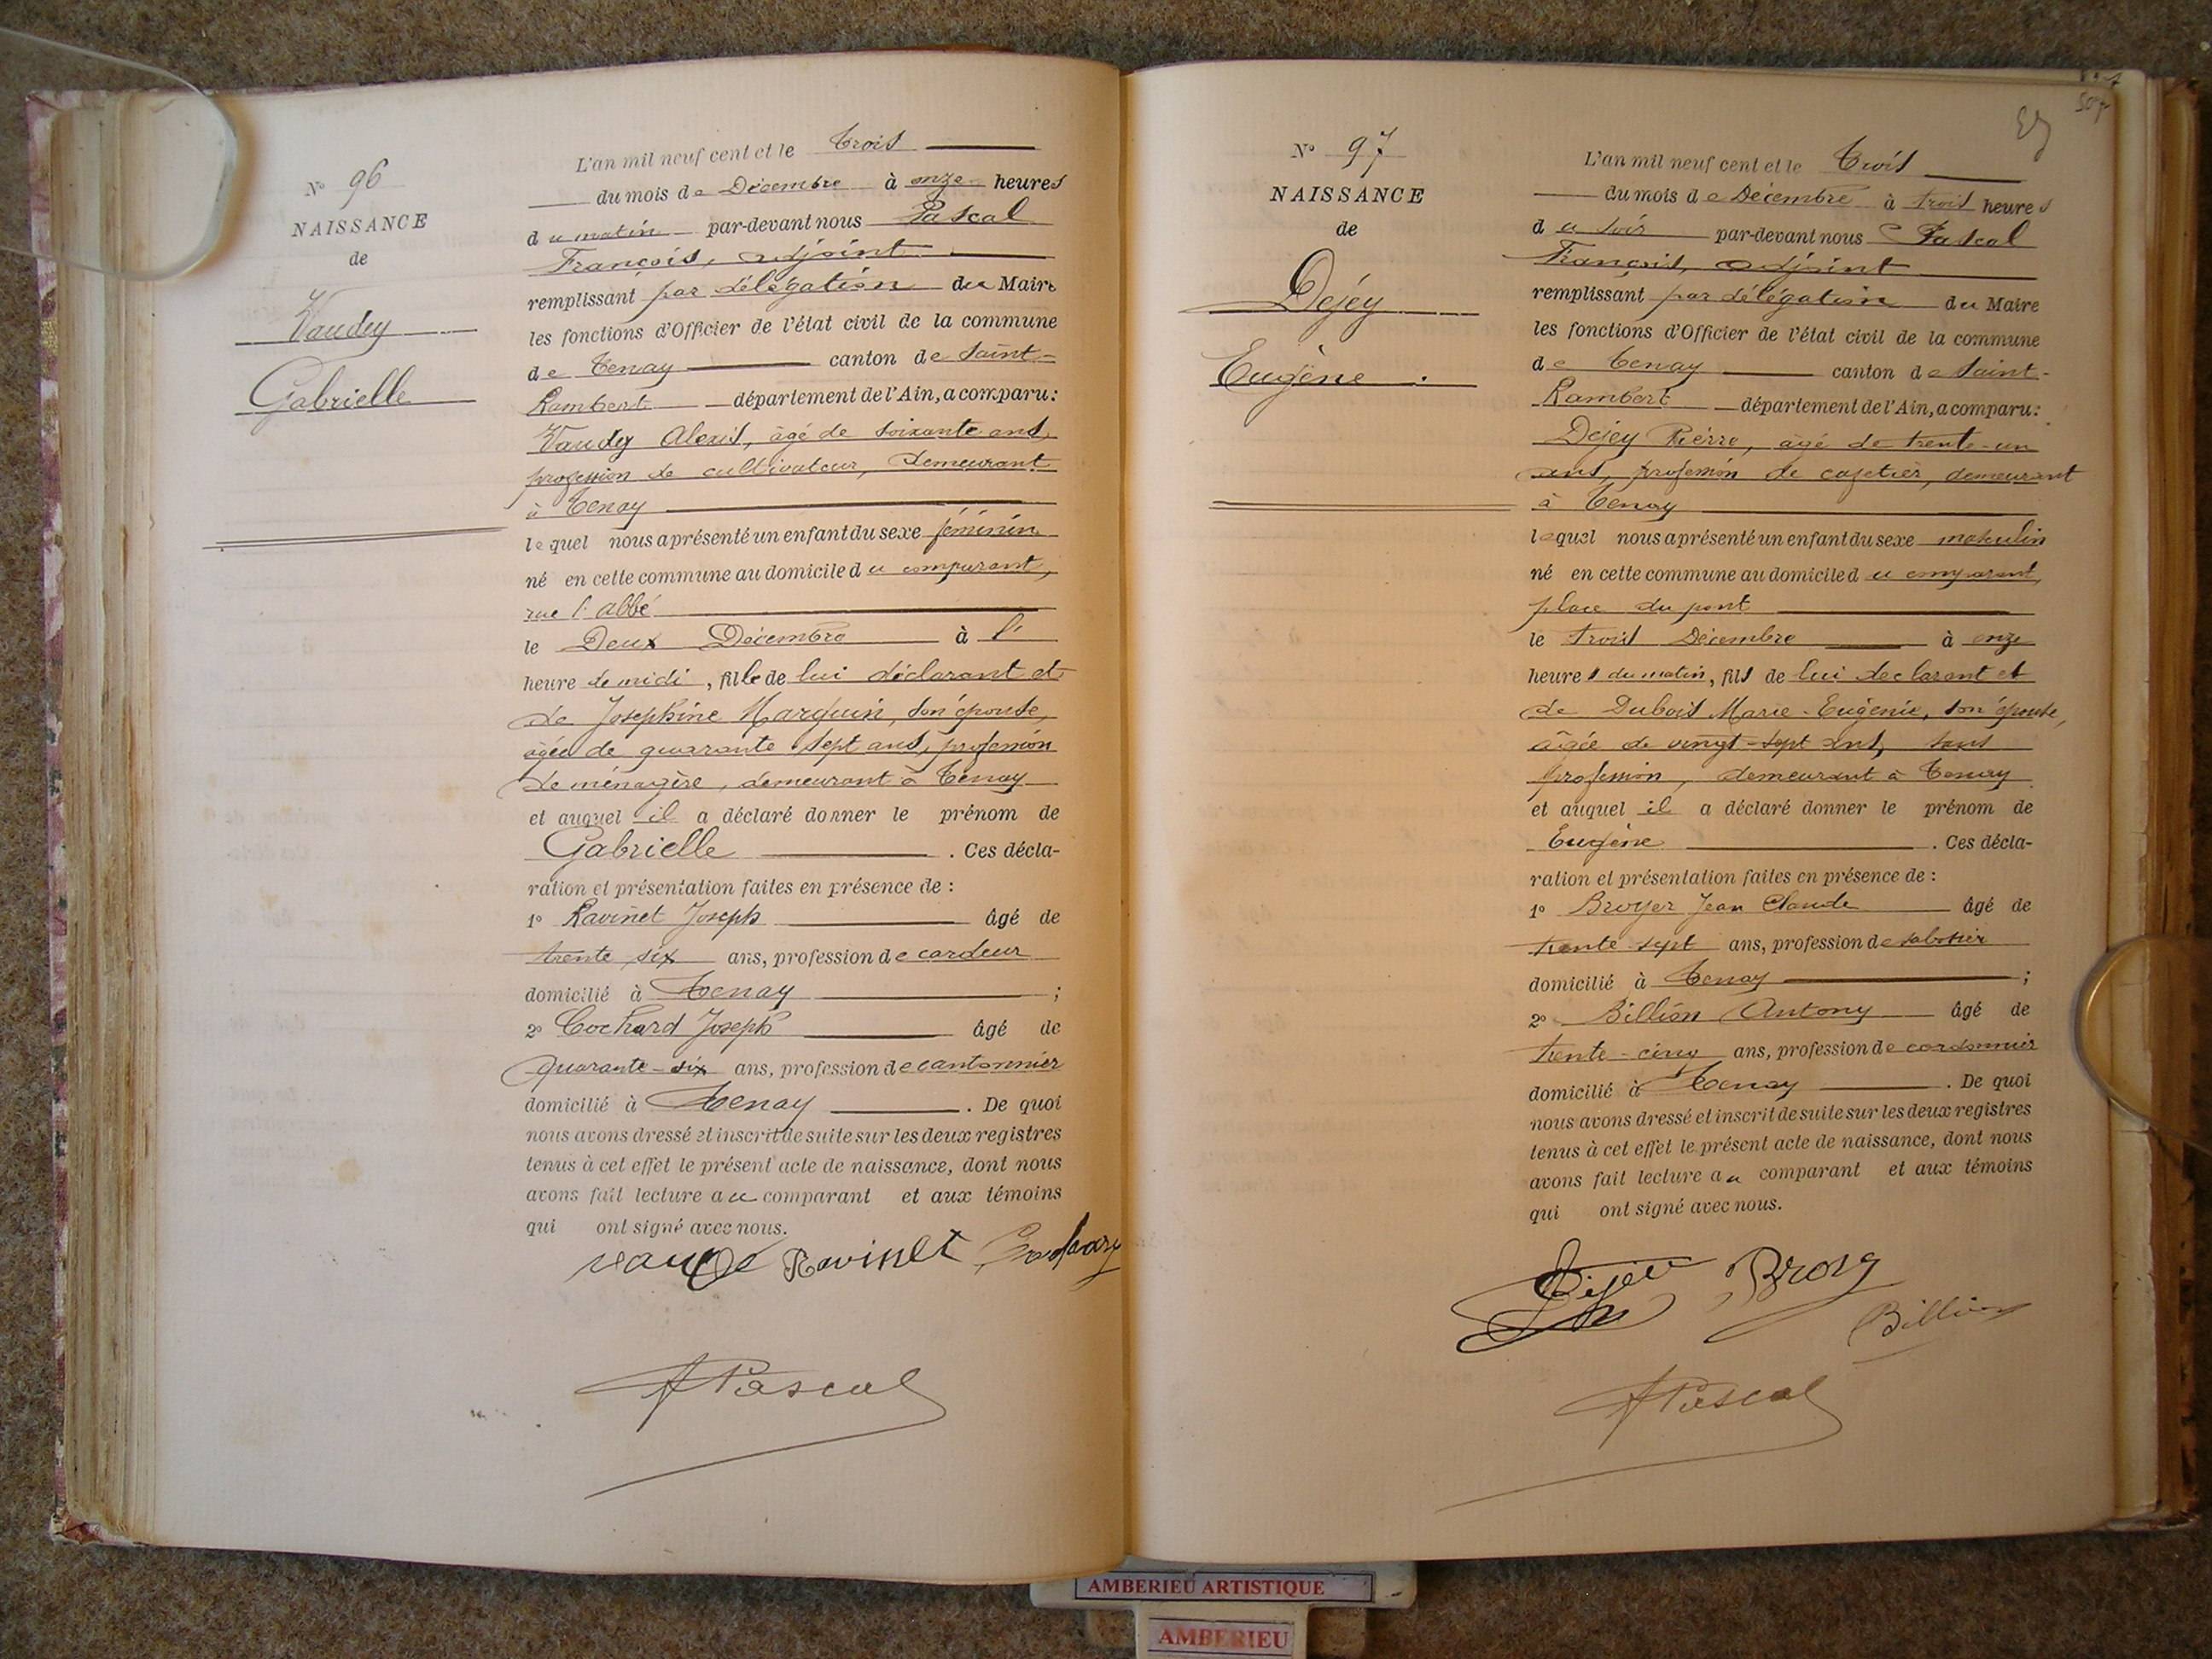 N° 96
NAISSANCE
de
Vaudey
Gabrielle
L'an mil neuf cent et le Trois
du mois de Décembre à onze heures
du matin par-devant nous Pascal
François, adjoint
remplissant par délégation du Maire
les fonctions d'Officier de l'état civil de la commune
de Tenay canton de Saint-
Rambert département de l'Ain, a comparu:
Vaudey Alexis, âgé de soixante ans,
profession de cultivateur, demeurant
à Tenay
lequel nous a présenté un enfant du sexe féminin
né en cette commune au domicile du comparant,
rue l'abbé
le Deux Décembre à
heure de midi, fille de lui déclarant et
de Josephine Marquin, son épouse,
âgée de quarante sept ans, profession
de ménagère, demeurant à Tenay
et auquel il a déclaré donner le prénom de
Gabrielle . Ces décla-
ration et présentation faites en présence de :
1° Ravinet Joseph âgé de
trente six ans, profession de cardeur
domicilié à Tenay ;
2° Cochard Joseph âgé de
quarante-six ans, profession de cantonnier
domicilié à Tenay . De quoi
nous avons dressé et inscrit de suite sur les deux registres
tenus à cet effet le présent acte de naissance, dont nous
avons fait lecture au comparant et aux témoins
qui ont signé avec nous.
Ravinet
Pascal
N° 97
NAISSANCE
de
Dejey
Eugène.
L'an mil neuf cent et le Trois
du mois de Décembre à trois heures
du soir par-devant nous Pascal
François, adjoint
remplissant par délégation du Maire
les fonctions d'Officier de l'état civil de la commune
de Tenay canton de Saint-
Rambert département de l'Ain, a comparu:
Dejey Pierre, âgé de trente-un
ans, profession de cafetier, demeurant
à Tenay
lequel nous a présenté un enfant du sexe masculin
né en cette commune au domicile du comparant,
place du pont
le trois Décembre à onze
heures du matin, fils de lui declarant et
de Dubois Marie-Eugénie, son épouse,
âgée de vingt-sept ans, sans
profession, demeurant à Tenay
et auquel il a déclaré donner le prénom de
Eugène . Ces décla-
ration et présentation faites en présence de :
1° Broyer Jean Claude âgé de
trente-sept ans, profession de sabotier
domicilié à Tenay ;
2° Billion Antony âgé de
trente-cinq ans, profession de cordonnier
domicilié à Tenay . De quoi
nous avons dressé et inscrit de suite sur les deux registres
tenus à cet effet le présent acte de naissance, dont nous
avons fait lecture au comparant et aux témoins
qui ont signé avec nous.
Billion
Pascal
AMBERIEU ARTISTIQUE
AMBERIEU